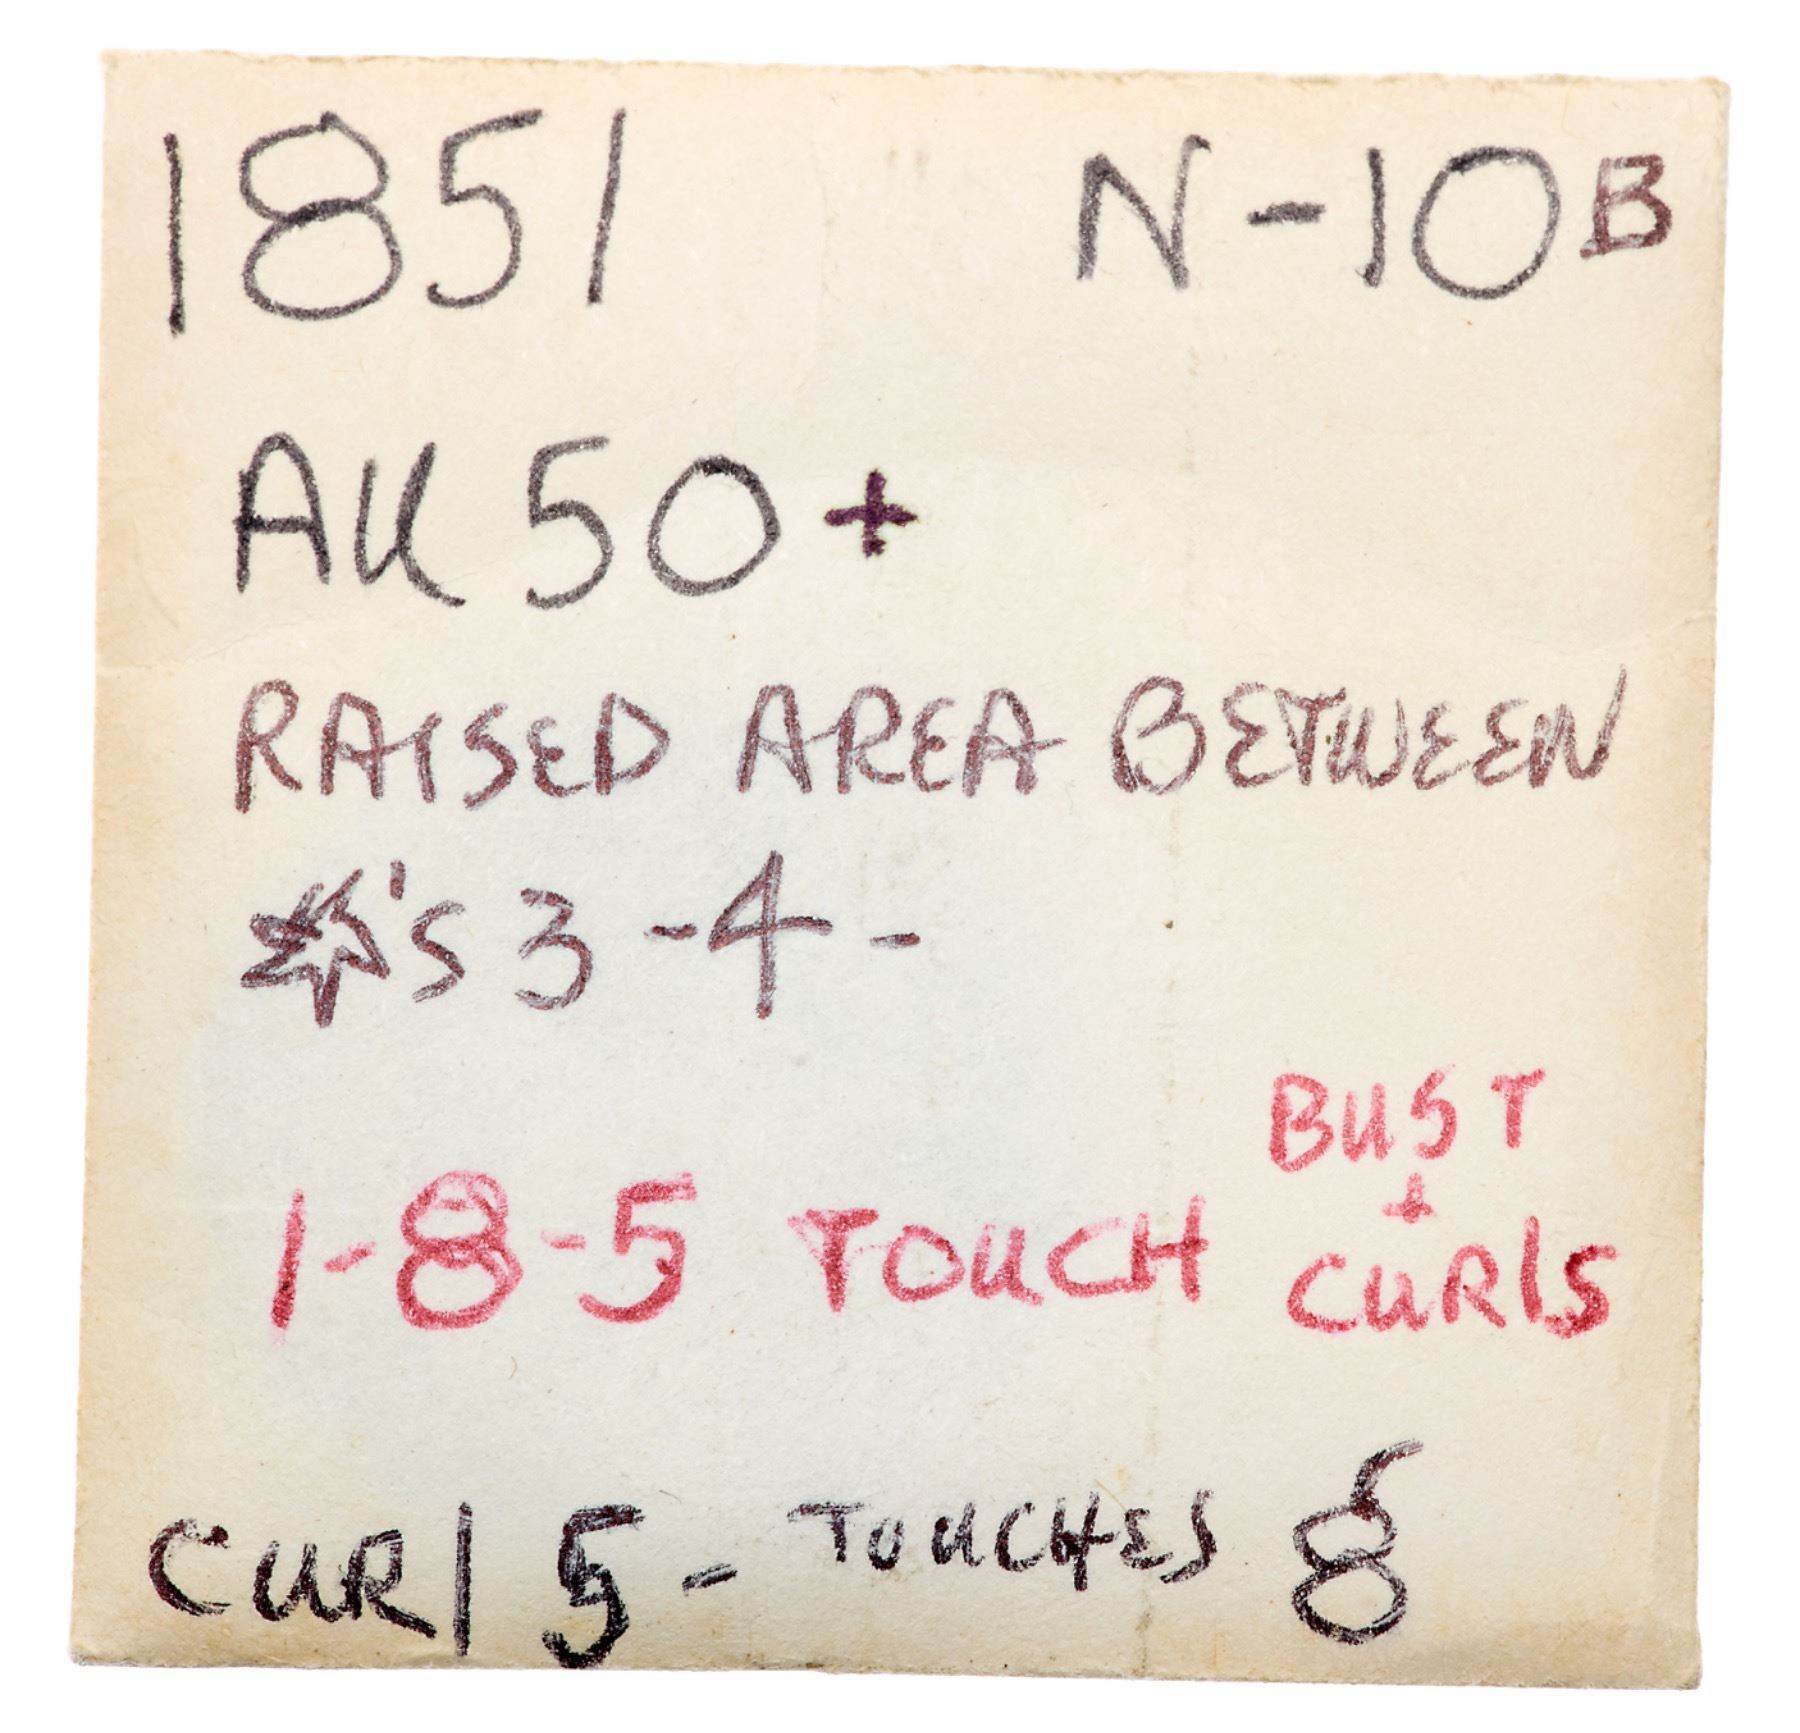 1851 N-10B
AU 50+
RAISED AREA BETWEEN
☆'s 3-4-
1-8-5 TOUCH BUST + CURlS
CURl 5- TOUCHES 8